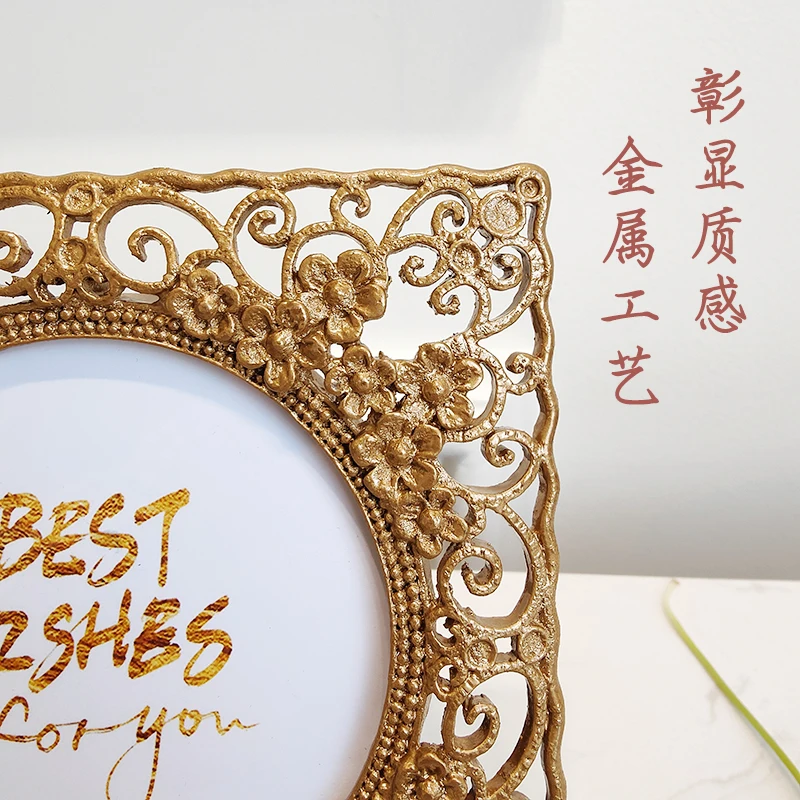 彰显质感
金属工艺
BEST
for you